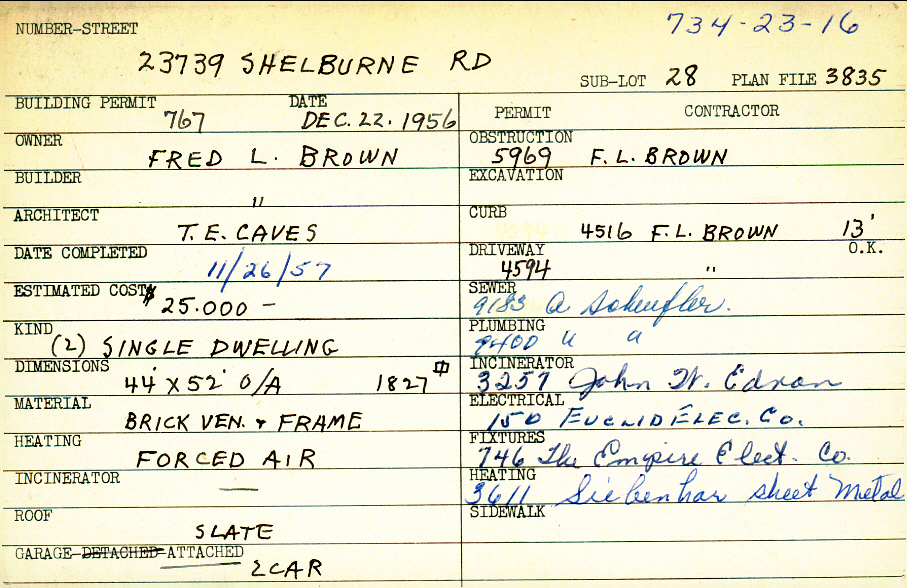 NUMBER-STREET 734-23-16
23739 SHELBURNE RD
SUB-LOT 28 PLAN FILE 3835
BUILDING PERMIT 767 DATE DEC. 22. 1956
OWNER FRED L. BROWN
BUILDER "
ARCHITECT T. E. CAVES
DATE COMPLETED 11/26/57
ESTIMATED COST $ 25.000 —
KIND (2) SINGLE DWELLING
DIMENSIONS 44' X 52' O/A 1827
MATERIAL BRICK VEN. & FRAME
HEATING FORCED AIR
INCINERATOR —
ROOF SLATE
GARAGE-DETACHED-ATTACHED 2 CAR
PERMIT CONTRACTOR
OBSTRUCTION 5969 F. L. BROWN
EXCAVATION
CURB 4516 F. L. BROWN 13'
O.K.
DRIVEWAY 4594 "
SEWER 9183 A
PLUMBING " "
INCINERATOR 3257 John W.
ELECTRICAL 150 EUCLID ELEC. Co.
FIXTURES 746 The Empire Elect. Co.
HEATING 3611 Siebenhar sheet Metal
SIDEWALK